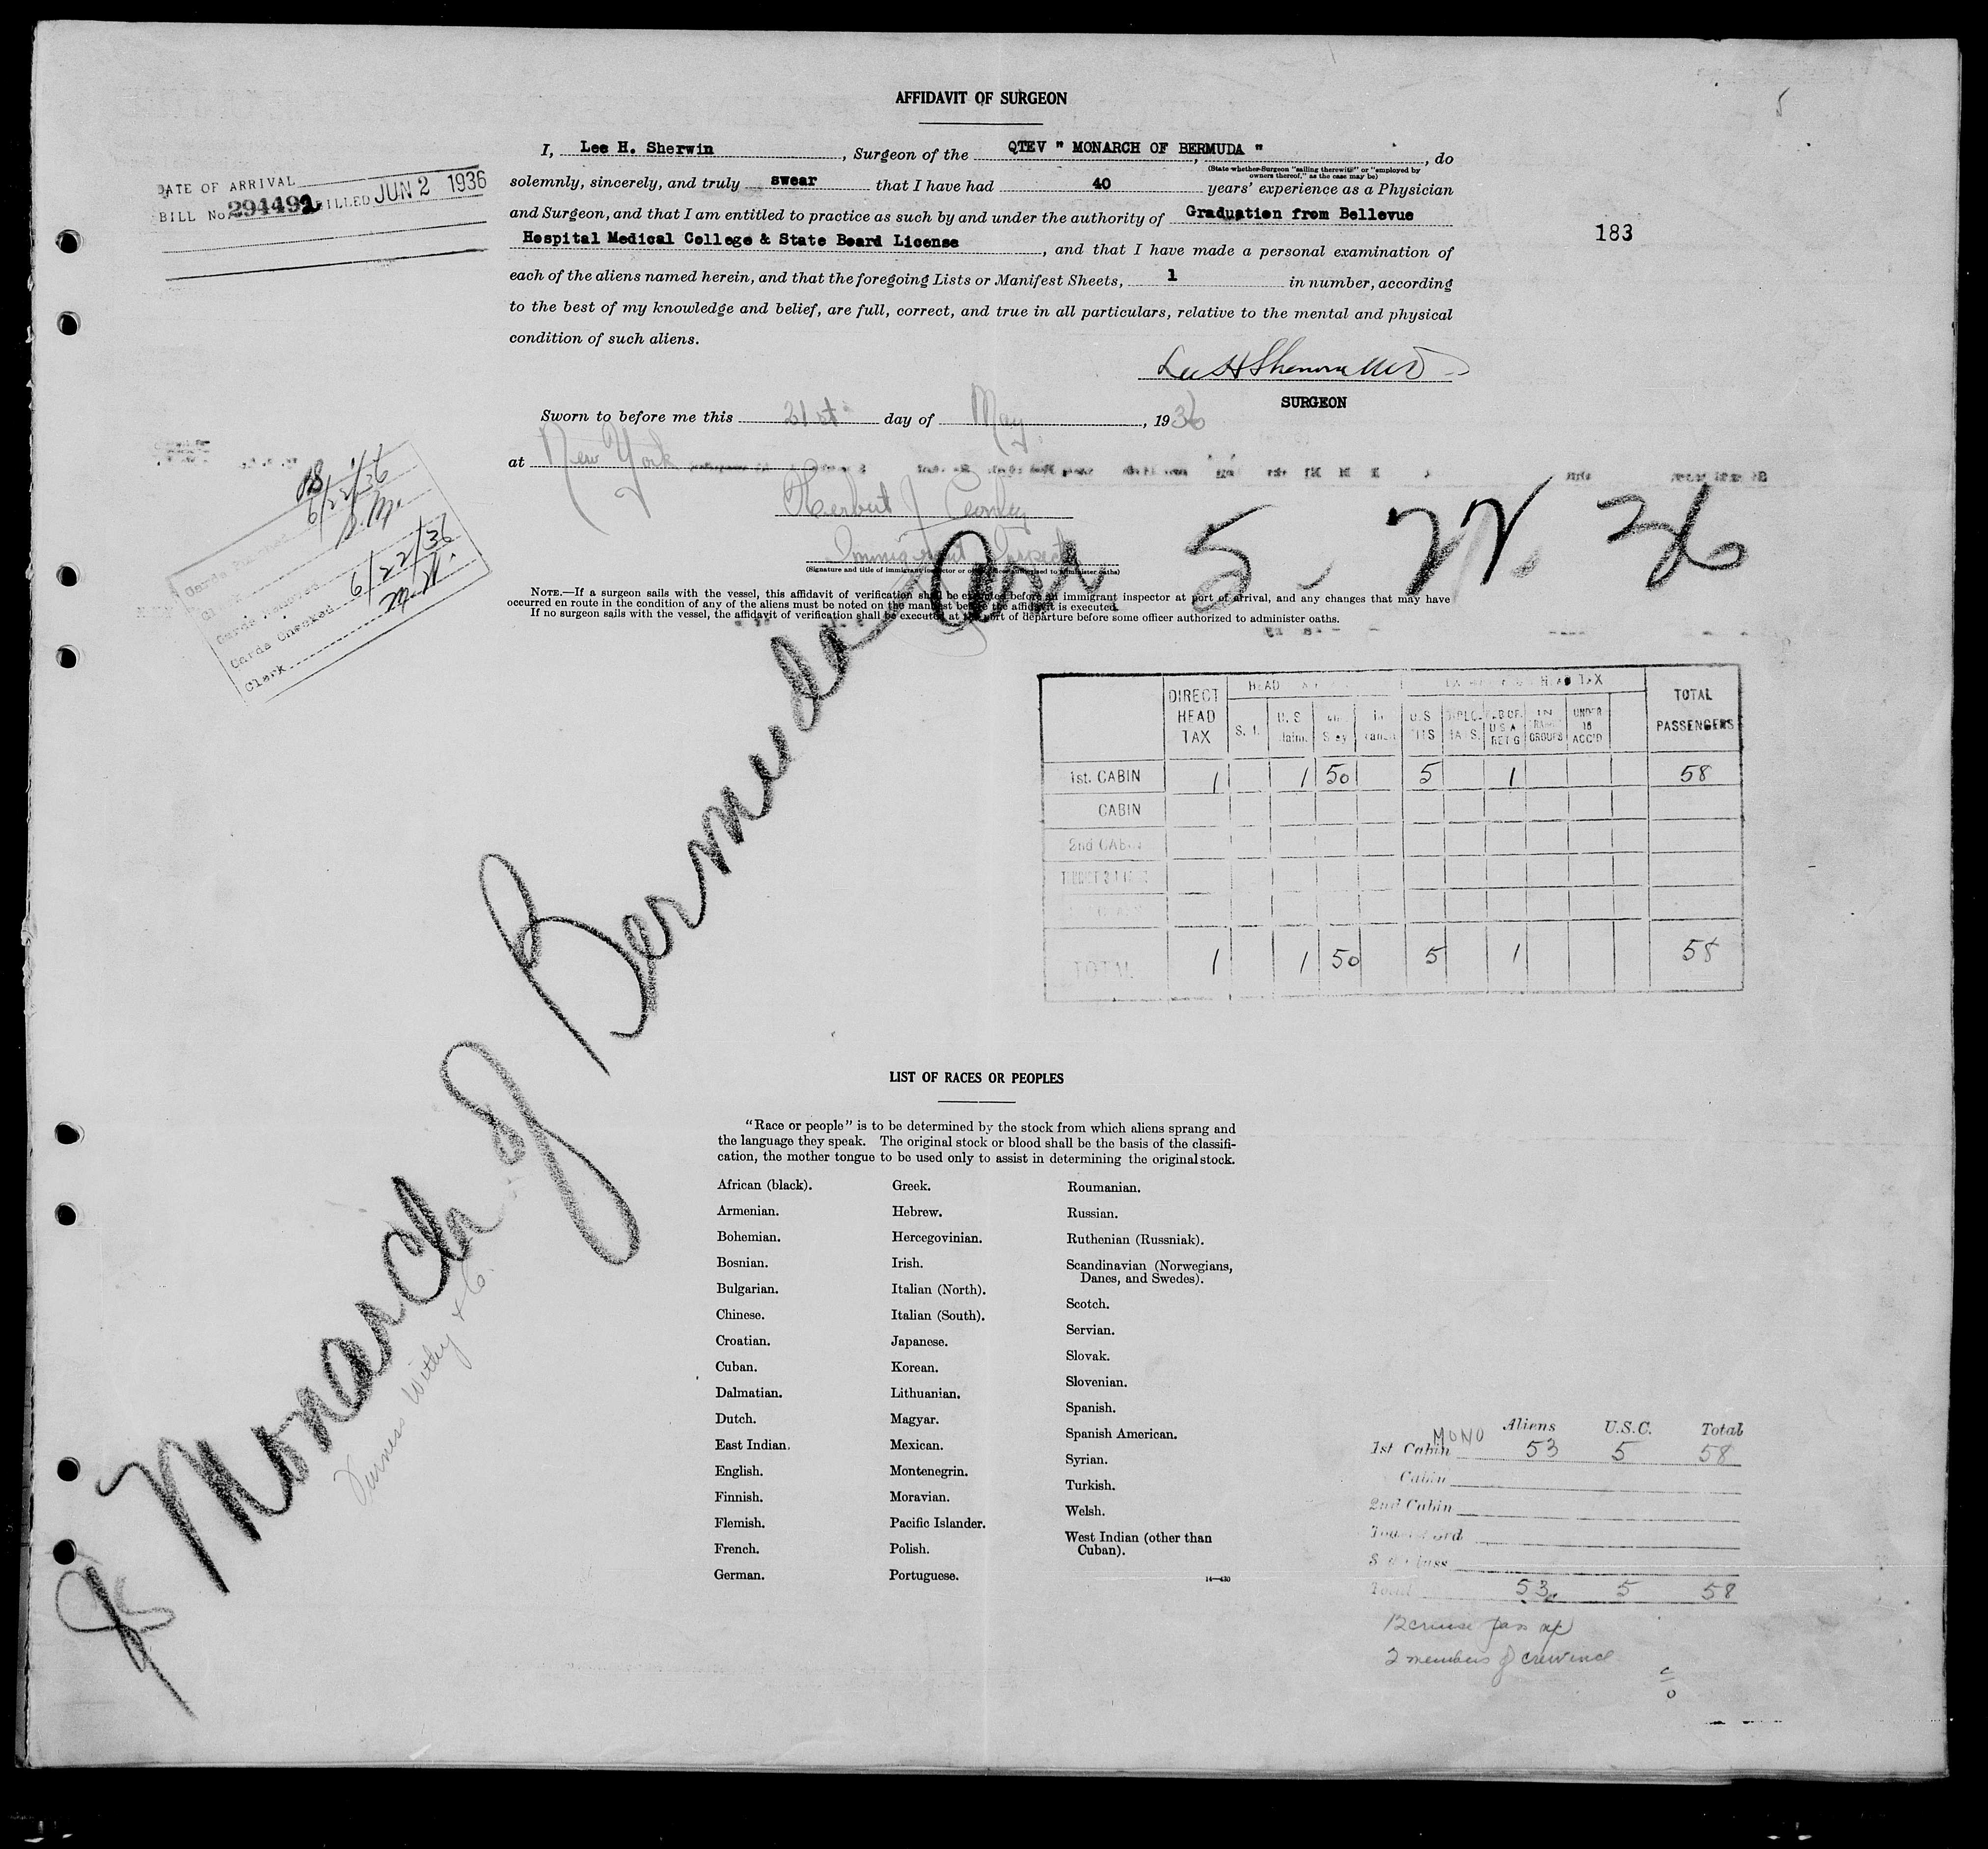 AFFIDAVIT OF SURGEON
I, Lee H. Sherwin, Surgeon of the QTEV " MONARCH OF BERMUDA ", do
(State whether Surgeon "sailing therewith" or "employed by
owners thereof," as the case may be)
solemnly, sincerely, and truly swear that I have had 40 years' experience as a Physician
and Surgeon, and that I am entitled to practice as such by and under the authority of Graduation from Bellevue
Hospital Medical College & State Board License, and that I have made a personal examination of
each of the aliens named herein, and that the foregoing Lists or Manifest Sheets, 1 in number, according
to the best of my knowledge and belief, are full, correct, and true in all particulars, relative to the mental and physical
condition of such aliens.
SURGEON
Sworn to before me this 21st day of May, 1936
at New York
Herbert J
(Signature and title of immigrant inspector or other officer authorised to administer oaths)
NOTE.—If a surgeon sails with the vessel, this affidavit of verification shall be executed before an immigrant inspector at port of arrival, and any changes that may have
occurred en route in the condition of any of the aliens must be noted on the manifest before the affidavit is executed.
If no surgeon sails with the vessel, the affidavit of verification shall be executed at the port of departure before some officer authorized to administer oaths.
DATE OF ARRIVAL
BILL No. BILLED JUN 2 1936
183
6/22/36
Cards Checked 6/22/36
Clerk
Arr 5
Monarch of Bermuda
Furness Withy & C.
DIRECT HEAD TAX
HEAD TAX
TOTAL PASSENGERS
1st. CABIN 1 1 50 5 1 58
CABIN
2nd CABIN
TOTAL 1 1 50 5 1 58
LIST OF RACES OR PEOPLES
"Race or people" is to be determined by the stock from which aliens sprang and
the language they speak. The original stock or blood shall be the basis of the classifi-
cation, the mother tongue to be used only to assist in determining the original stock.
African (black).
Armenian.
Bohemian.
Bosnian.
Bulgarian.
Chinese.
Croatian.
Cuban.
Dalmatian.
Dutch.
East Indian.
English.
Finnish.
Flemish.
French.
German.
Greek.
Hebrew.
Hercegovinian.
Irish.
Italian (North).
Italian (South).
Japanese.
Korean.
Lithuanian.
Magyar.
Mexican.
Montenegrin.
Moravian.
Pacific Islander.
Polish.
Portuguese.
Roumanian.
Russian.
Ruthenian (Russniak).
Scandinavian (Norwegians,
Danes, and Swedes).
Scotch.
Servian.
Slovak.
Slovenian.
Spanish.
Spanish American.
Syrian.
Turkish.
Welsh.
West Indian (other than
Cuban).
14—430
MONO Aliens U.S.C. Total
1st Cabin 53 5 58
Cabin
2nd Cabin
Total 53 5 58
2 members of crew incl